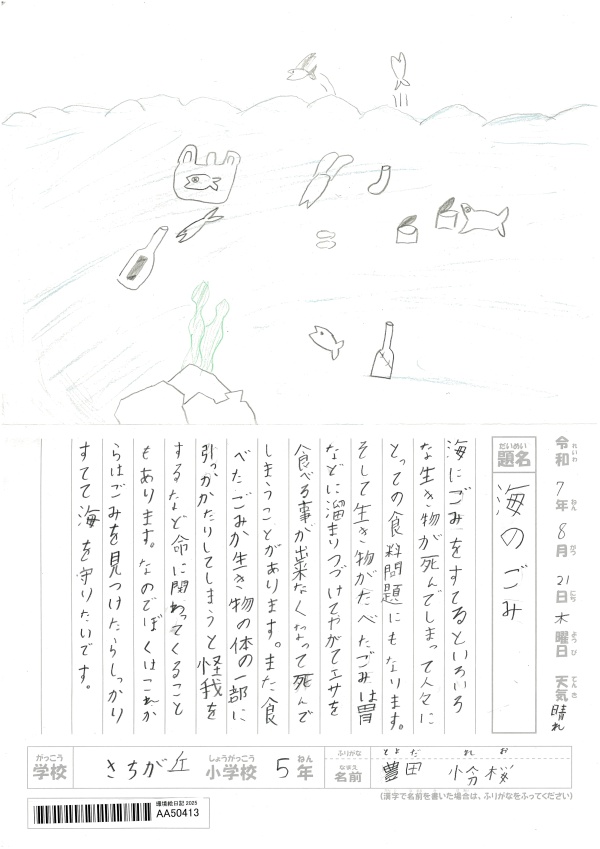 れいわ ねん がつ にち ようび てんき
令和7年8月21日木曜日 天気 晴れ
だいめい
題名 海のごみ
海にごみをすてるといろいろ
な生き物が死んでしまって人々に
とっての食料問題にもなります。
そして生き物がたべたごみは胃
などに溜まりつづけてやがてエサを
食べる事が出来なくなって死んで
しまうことがあります。また食
べたごみが生き物の体の一部に
引っかかたりしてしまうと怪我を
するなど命に関わってくること
もあります。なのでぼくはこれか
らはごみを見つけたらしっかり
すてて海を守りたいです。
がっこう しょうがっこう ねん ふりがな とよだ れお
学校 さちが丘 小学校 5年 なまえ 名前 豊田 怜桜
(漢字で名前を書いた場合は、ふりがなをふってください)
環境絵日記 2025
AA50413